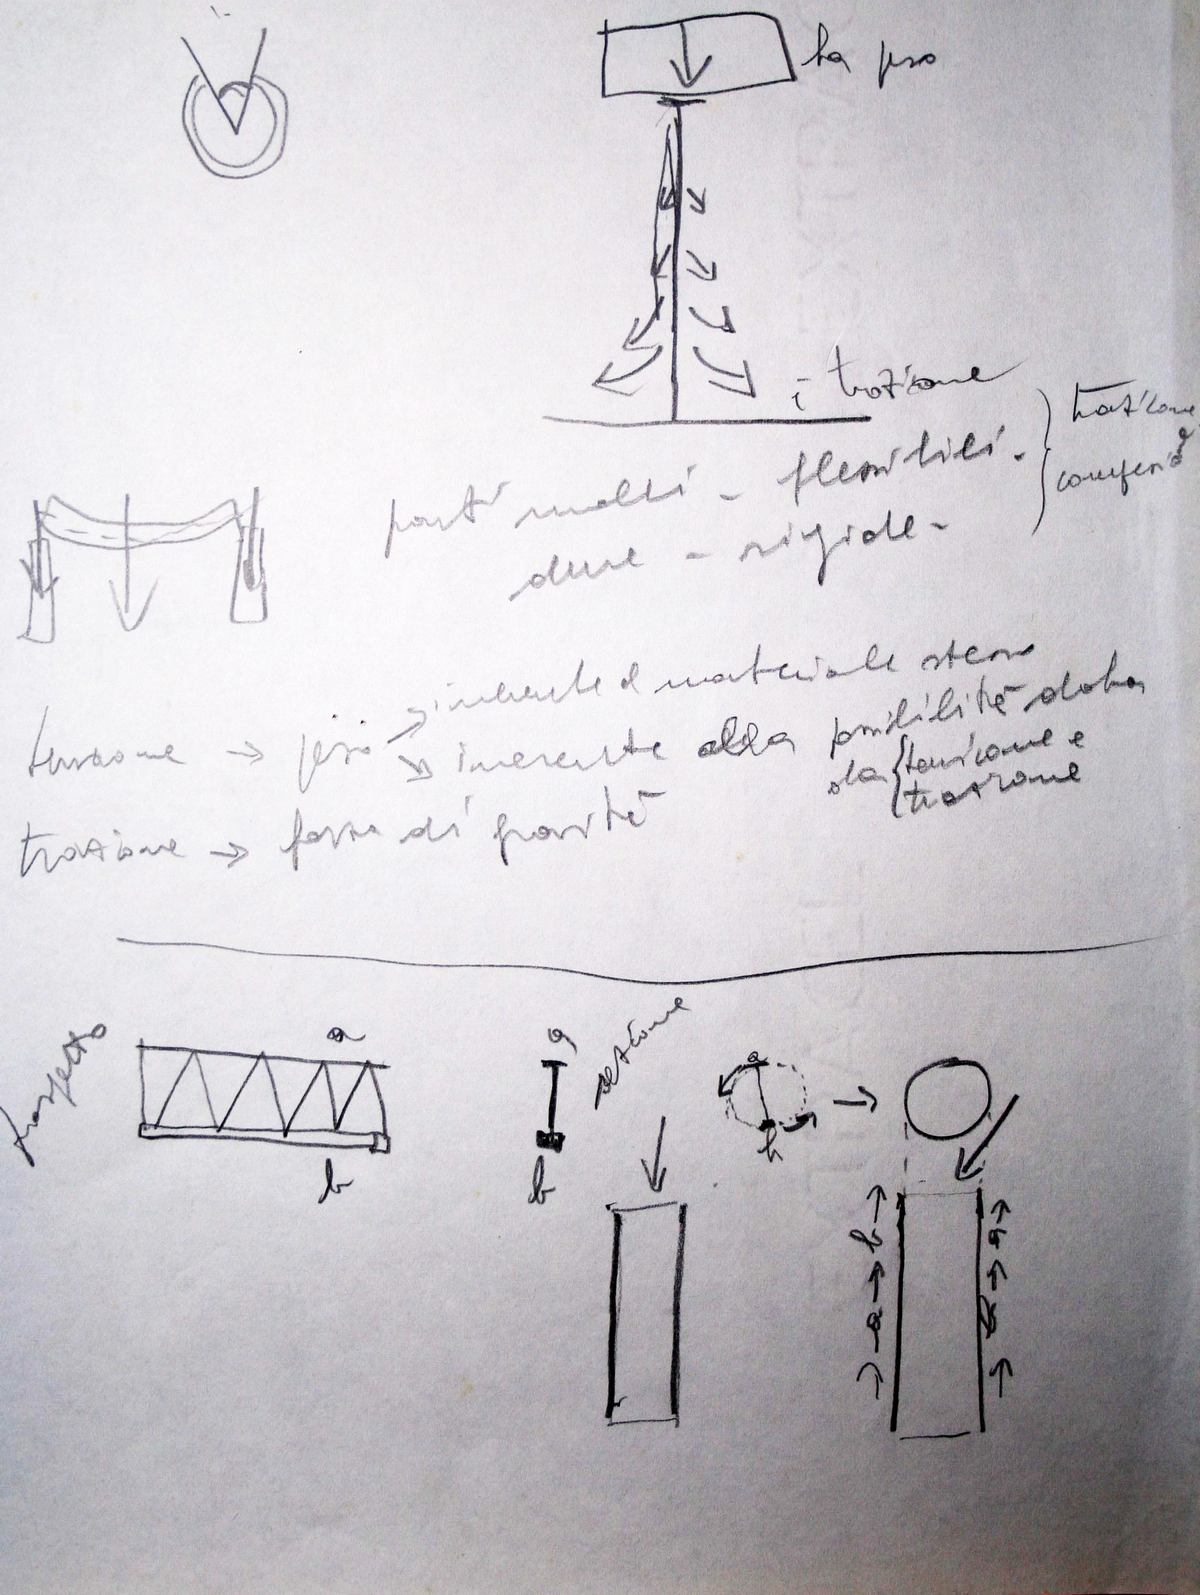 ha peso
i trazione
parti molli - flessibili.
dure - rigide -
trazione
e
tensione → peso → inerente al materiale stesso
→ inerente alla possibilità data
da { tensione e
trazione
trazione → forza di gravità
prospetto
a
b
a
b
sezione
a
b
→ a → b →
→ b → a →